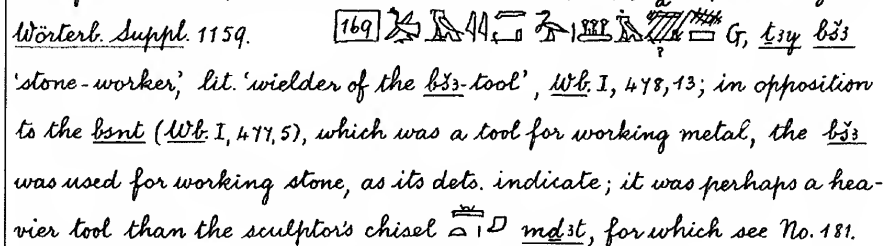 Wörterb. Suppl. 1159. [169] G, ṯꜣy bšꜣ
'stone-worker', lit. 'wielder of the bšꜣ-tool', Wb. I, 478, 13; in opposition
to the bsnt (Wb. I, 477, 5), which was a tool for working metal, the bšꜣ
was used for working stone, as its dets. indicate; it was perhaps a hea-
vier tool than the sculptor's chisel mḏꜣt, for which see No. 181.